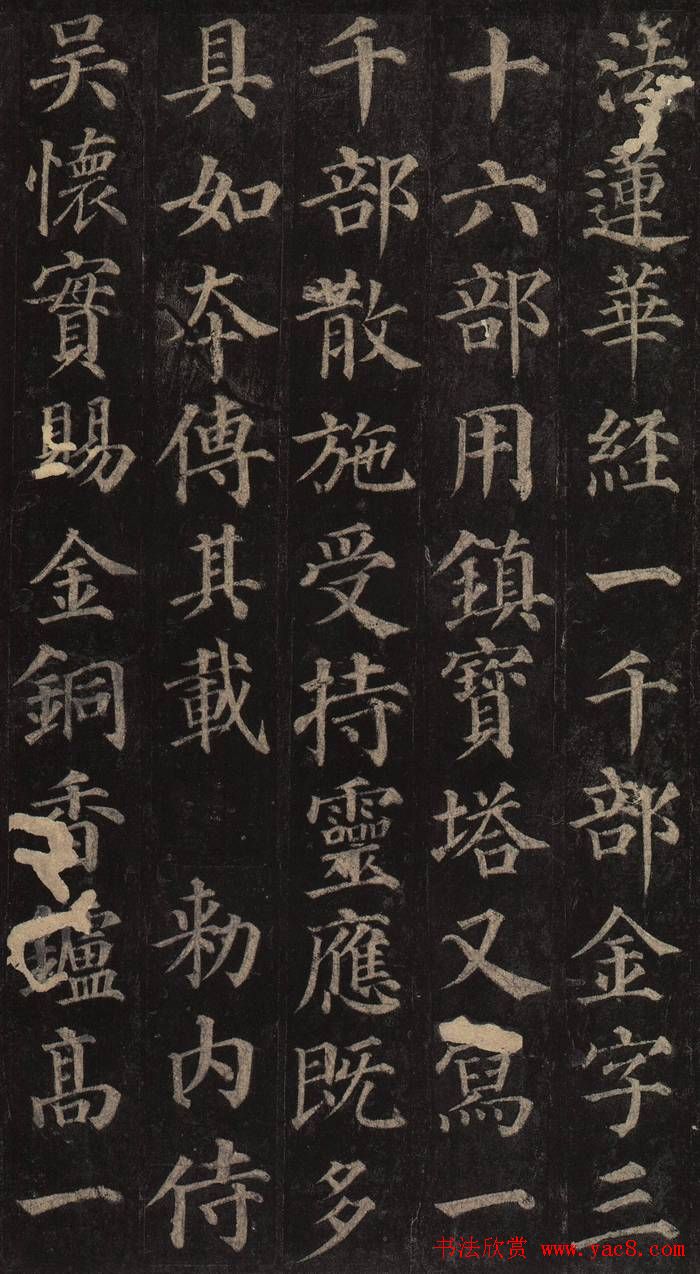 法蓮華經一千部金字三
十六部用鎮寶塔又寫一
千部散施受持靈應既多
具如本傳其載 敕内侍
吳懷實賜金銅香鑪高一
书法欣赏 www.yac8.com